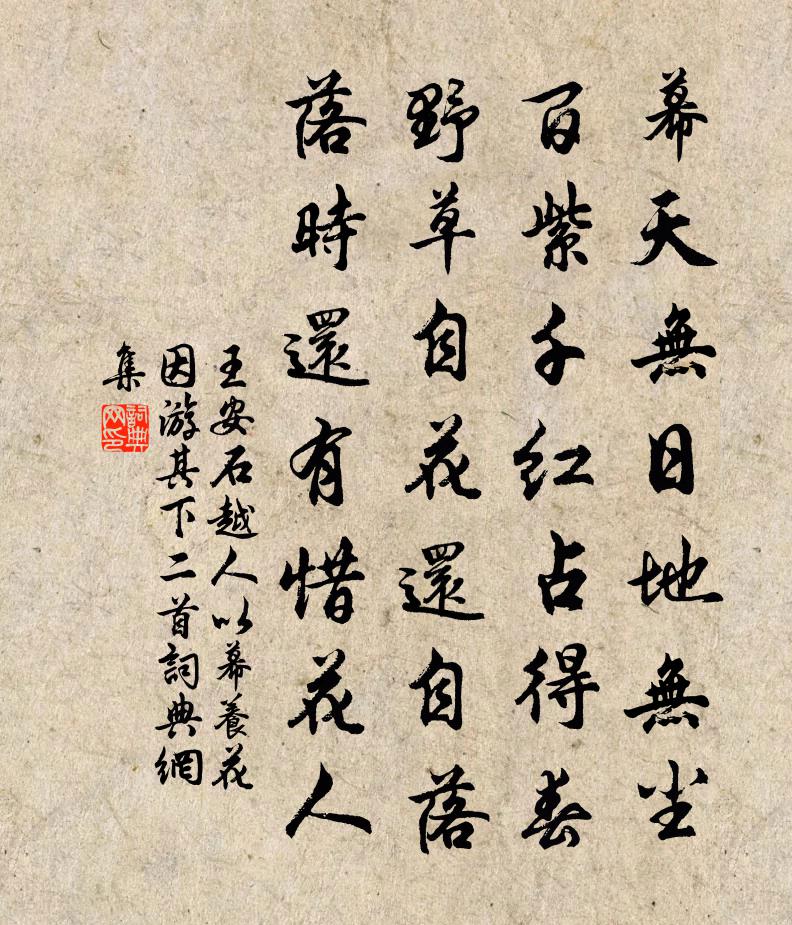 幕天無日地無塵
百紫千紅占得春
野草自花還自落
落時還有惜花人
王安石越人以幕養花
因游其下二首詞典網
集
詞典网印